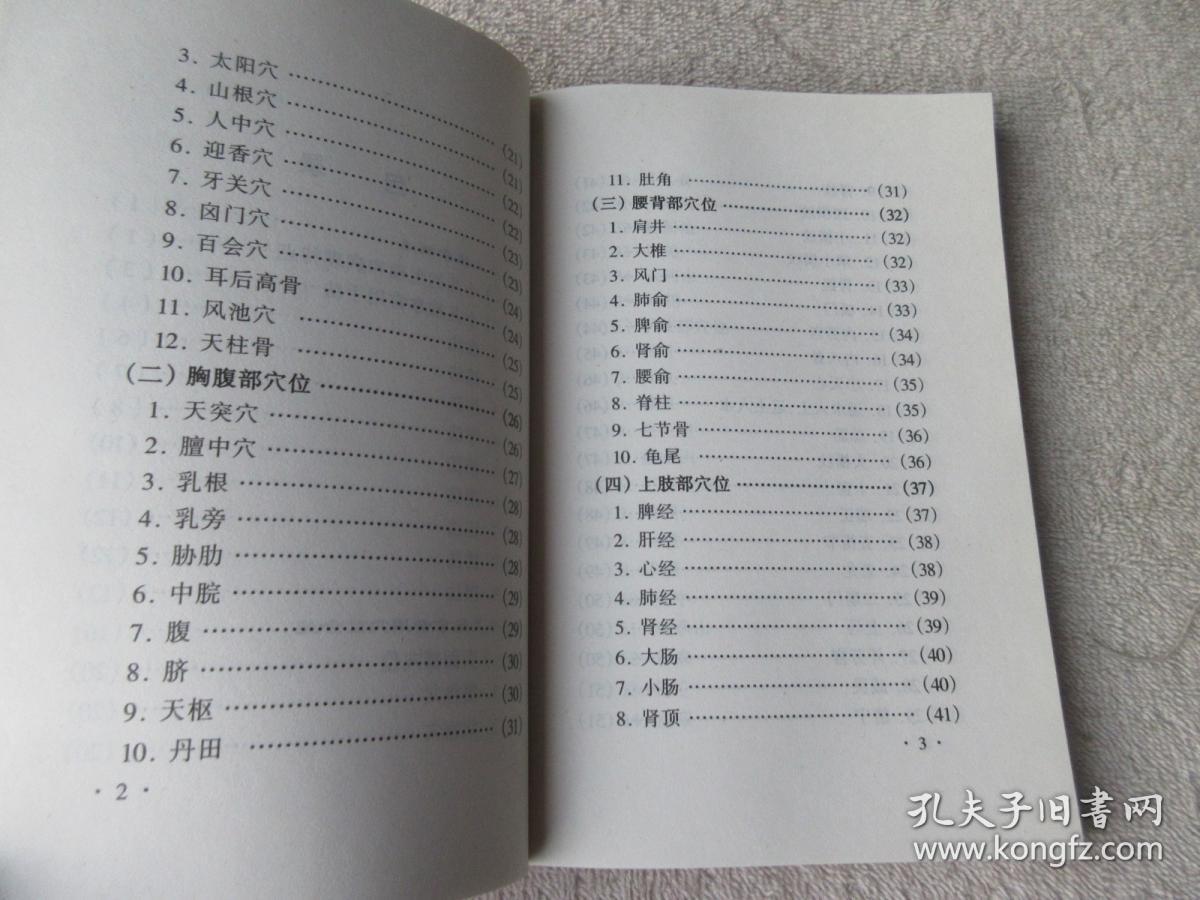 3. 太阳穴 …… (21)
4. 山根穴 …… (21)
5. 人中穴 …… (22)
6. 迎香穴 …… (22)
7. 牙关穴 …… (23)
8. 囟门穴 …… (23)
9. 百会穴 …… (24)
10. 耳后高骨 …… (24)
11. 风池穴 …… (25)
12. 天柱骨 …… (25)
(二) 胸腹部穴位 …… (26)
1. 天突穴 …… (26)
2. 膻中穴 …… (27)
3. 乳根 …… (28)
4. 乳旁 …… (28)
5. 胁肋 …… (28)
6. 中脘 …… (29)
7. 腹 …… (29)
8. 脐 …… (30)
9. 天枢 …… (30)
10. 丹田 …… (31)
· 2 ·
11. 肚角 …… (31)
(三) 腰背部穴位 …… (32)
1. 肩井 …… (32)
2. 大椎 …… (32)
3. 风门 …… (33)
4. 肺俞 …… (33)
5. 脾俞 …… (34)
6. 肾俞 …… (34)
7. 腰俞 …… (35)
8. 脊柱 …… (35)
9. 七节骨 …… (36)
10. 龟尾 …… (36)
(四) 上肢部穴位 …… (37)
1. 脾经 …… (37)
2. 肝经 …… (38)
3. 心经 …… (38)
4. 肺经 …… (39)
5. 肾经 …… (39)
6. 大肠 …… (40)
7. 小肠 …… (40)
8. 肾顶 …… (41)
· 3 ·
孔夫子旧书网
www.kongfz.com